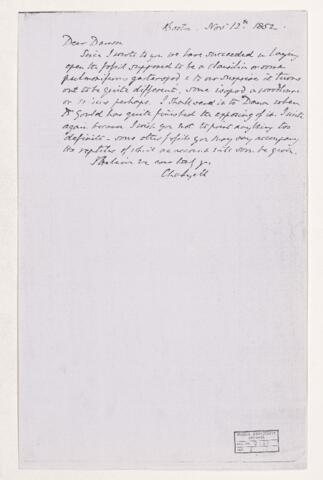 Boston. Nov. 12th 1852.
Dear Dawson
Since I wrote to you we have succeeded in laying
open the fossil supposed to be a clausilia or some
pulmoniferous gasteropod & to our surprise it turns
out to be quite different, some
or perhaps. I shall send it to Dana when
Dr Gould has quite finished the exposing of it. I write
again because I wish you not to print anything too
definite - some other fossils you may say accompany
the reptiles of which an account will soon be given.
Believe me ever truly yrs
Cha Lyell